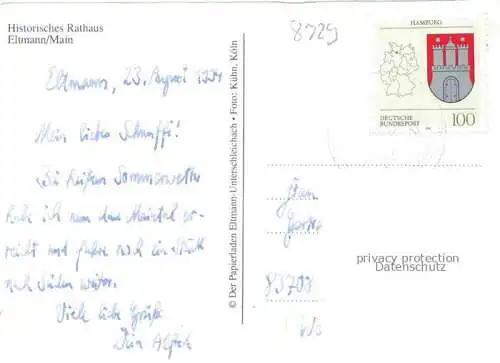 Historisches Rathaus
Eltmann/Main
8729
Eltmann, 23. August 1994
Mein liebes Schnuffi!
Bei Sommerwetter
habe ich nun das Maintal er-
reicht und fahre noch ein Stück
nach Süden weiter.
Viele liebe Grüße
Dein
© Der Papierladen Eltmann-Unterschleichach • Foto: Kühn, Köln
HAMBURG
DEUTSCHE
BUNDESPOST
100
privacy protection
Datenschutz
83708